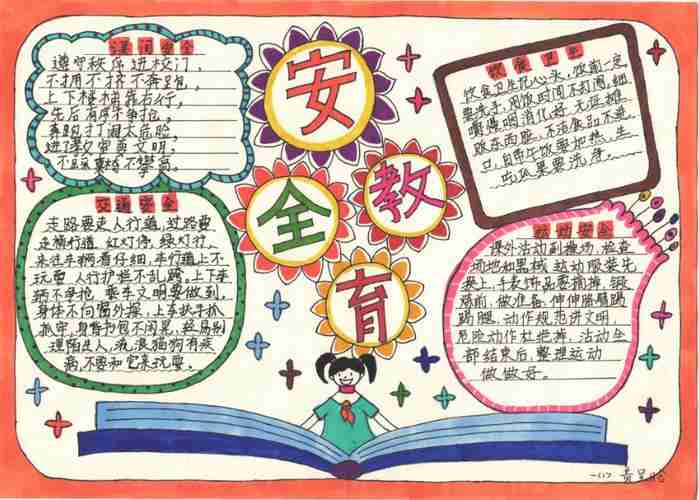 课间安全
遵守秩序进校门,
不拥不挤不奔跑,
上下楼梯靠右行,
先后有序不争抢。
奔跑打闹太危险,
进了教室要文明.
不追
不攀高。
安
全
教
育
饮食卫生
饮食卫生记心头, 饭前一定
要洗手, 用饭时间不打闹, 细
嚼慢咽消化好. 无证摊
贩东西脏, 不洁食
自带午饭要加热. 生
吃瓜果要洗净。
交通安全
走路要走人行道, 过路要
走横行道. 红灯停, 绿灯行.
来往车辆看仔细, 车行道上不
玩耍. 人行护栏不乱跨. 上下车
辆不争抢. 乘车文明要做到.
身体不向窗外探, 上车扶手抓
抓牢, 身背
包不闲晃, 轻易别
理陌生人, 流浪猫狗有疾
病, 不要和它来玩耍.
运动安全
课外活动到操场, 检查
场地和器械. 运动服装先
换上, 手表饰品要摘掉, 锻
炼前, 做准备, 伸伸胳膊踢
踢腿, 动作规范讲文明,
危险动作杜绝掉, 活动全
部结束后, 整理运动
做做好。